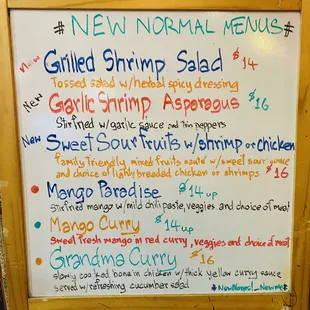 # NEW NORMAL MENUS #
New Grilled Shrimp Salad $14
Tossed salad w/herbal spicy dressing
New Garlic Shrimp Asparagus $16
Stirfried w/garlic sauce and thin peppers
New Sweet Sour Fruits w/shrimp or chicken
family friendly, mixed fruits saute w/sweet sour sauce
and choice of lighly breaded chicken or shrimps $16
Mango Paradise $14 up
Stirfried mango w/mild chili paste, veggies and choice of meat
Mango Curry $14 up
Sweet fresh mango in red curry, veggies and choice of meat
Grandma Curry $16
slowly cooked bone in chicken w/thick yellow curry sauce
served w/refreshing cucumber salad